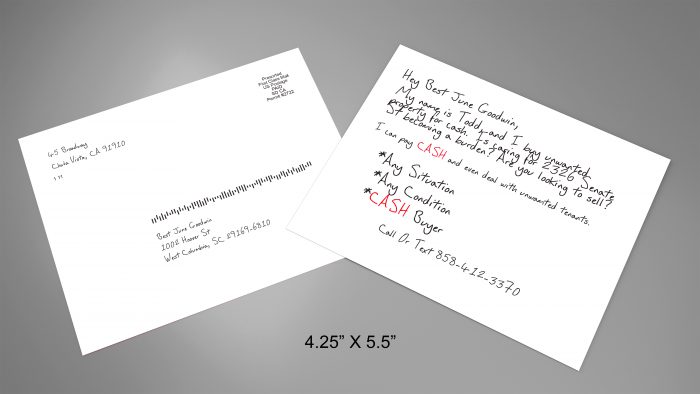 Presorted
First Class Mail
US Postage
PAID
Permit
45 Broadway
Chula Vista, CA 91910
Best June Goodwin
1002 Hoover St
West Columbia, SC 29169-6810
Hey Best June Goodwin,
My name is Todd, and I buy unwanted
property for cash. Is caring for 2326 Senate
St becoming a burden? Are you looking to sell?
I can pay CASH and even deal with unwanted tenants.
*Any Situation
*Any Condition
*CASH Buyer
Call Or Text 858-412-3370
4.25” X 5.5”